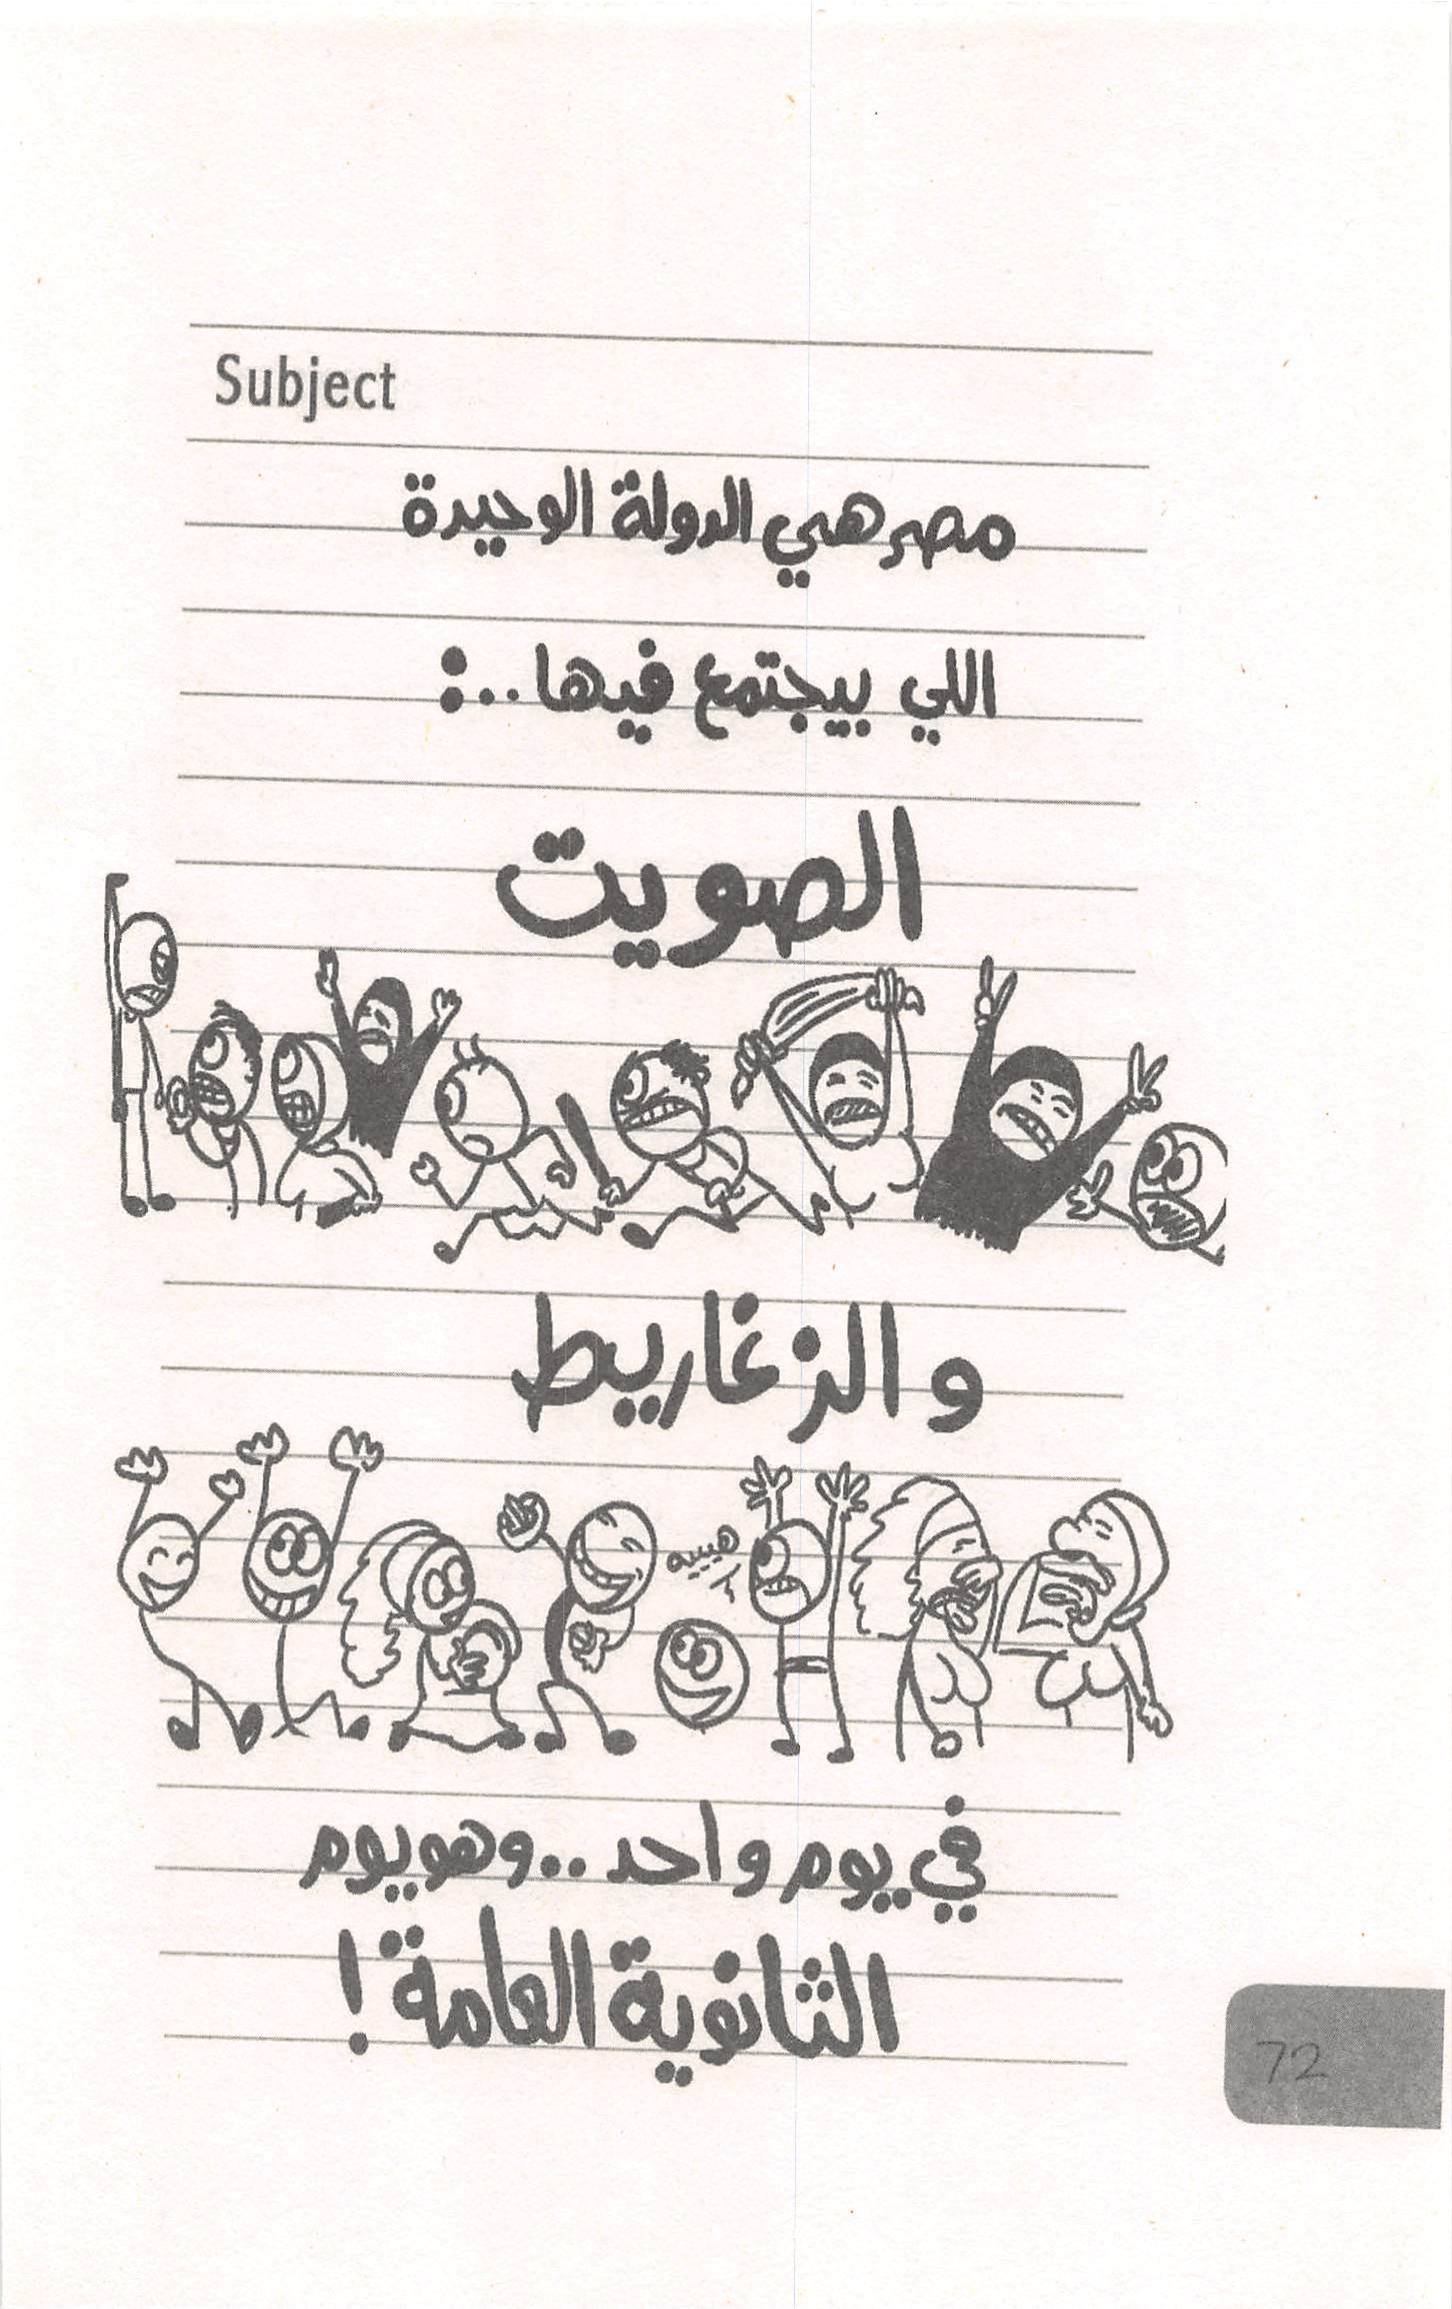 Subject
مصر هي الدولة الوحيدة
اللي بيجتمع فيها..:
الصويت
والزغاريط
هيييه
في يوم واحد..وهو يوم
الثانوية العامة!
72